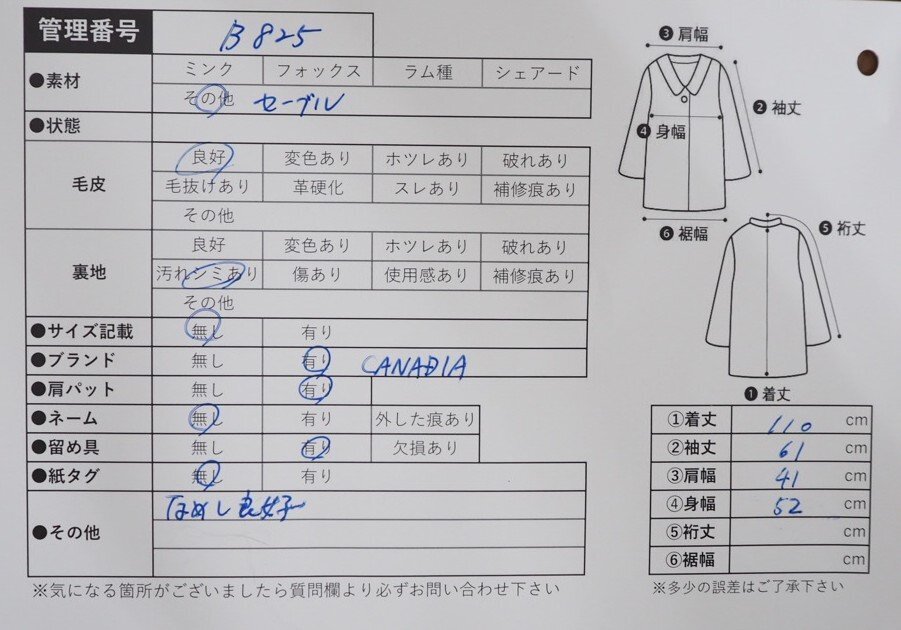 管理番号 B825
●素材 ミンク フォックス ラム種 シェアード
その他 セーブル
●状態
毛皮 良好 変色あり ホツレあり 破れあり
毛抜けあり 革硬化 スレあり 補修痕あり
その他
裏地 良好 変色あり ホツレあり 破れあり
汚れシミあり 傷あり 使用感あり 補修痕あり
その他
●サイズ記載 無し 有り
●ブランド 無し 有り CANADIA
●肩パット 無し 有り
●ネーム 無し 有り 外した痕あり
●留め具 無し 有り 欠損あり
●紙タグ 無し 有り
●その他 なめし良好
※気になる箇所がございましたら質問欄より必ずお問い合わせ下さい
❸肩幅
❷袖丈
❹身幅
❻裾幅
❺裄丈
❶着丈
①着丈 110 cm
②袖丈 61 cm
③肩幅 41 cm
④身幅 52 cm
⑤裄丈 cm
⑥裾幅 cm
※多少の誤差はご了承下さい